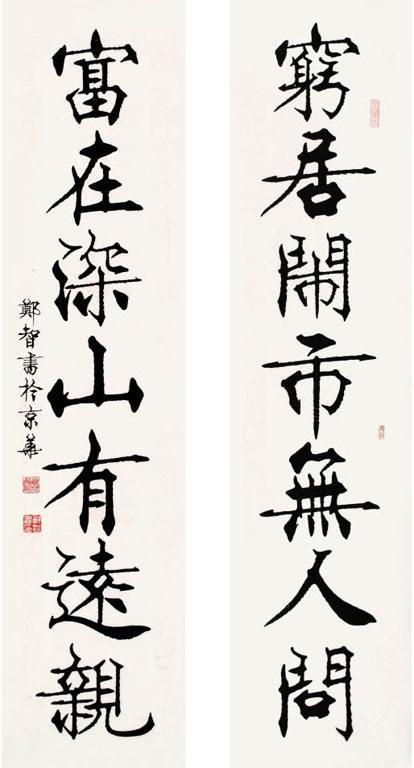 窮居鬧市無人問
富在深山有遠親
鄭智書於京華